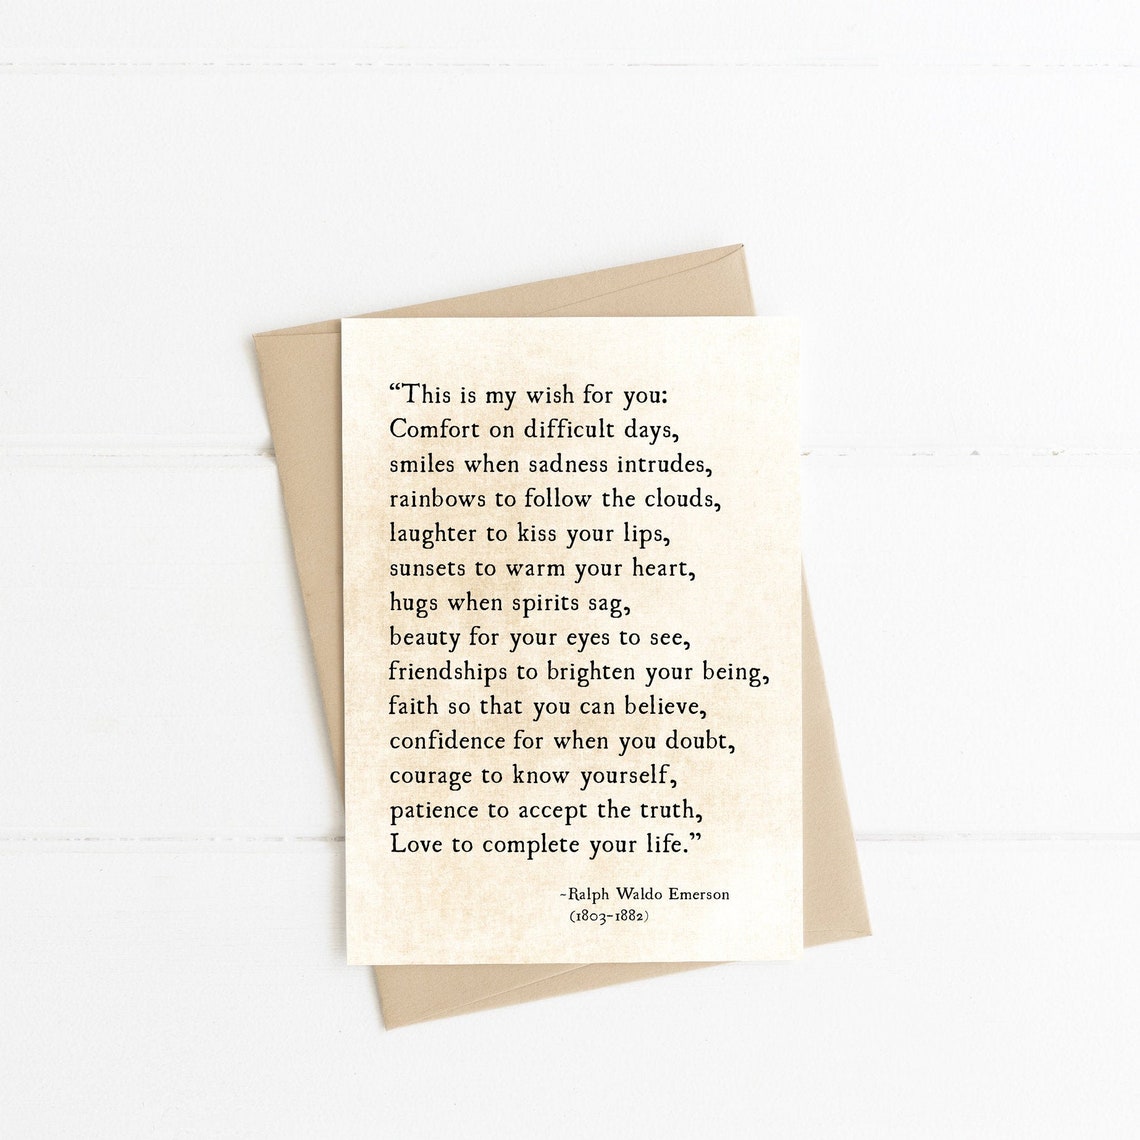 “This is my wish for you:
Comfort on difficult days,
smiles when sadness intrudes,
rainbows to follow the clouds,
laughter to kiss your lips,
sunsets to warm your heart,
hugs when spirits sag,
beauty for your eyes to see,
friendships to brighten your being,
faith so that you can believe,
confidence for when you doubt,
courage to know yourself,
patience to accept the truth,
Love to complete your life.”
~Ralph Waldo Emerson
(1803-1882)